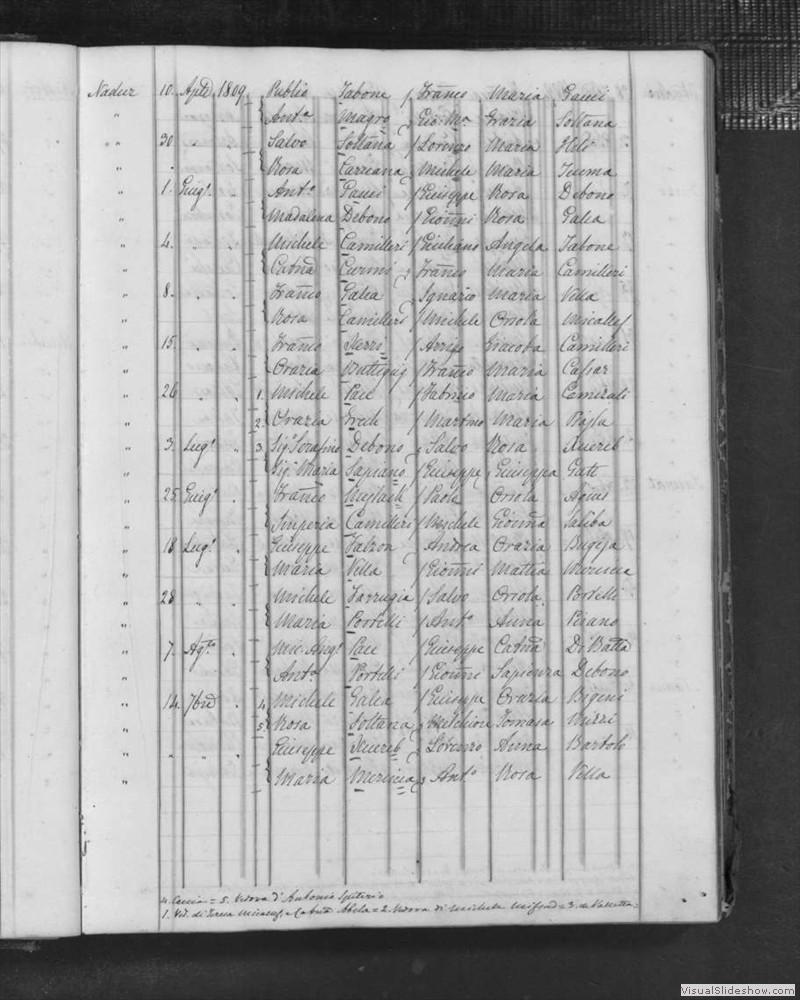 Nadur 10. Aple 1809. Publio Tabone / Franco Maria Pauci
" Anta Magro Gio: Ma Grazia Soltana
" 30 " " Salvo Soltana / Lorenzo Maria Heli
" Rosa Carcana / Michele Maria Tuma
" 1. Giugo " Anto Pauci / Giuseppe Rosa Debono
" Madalena Debono / Gionni Rosa Galea
" 4. " " Michele Camilleri / Giuliano Angela Tabone
" Catna Curmi Franco Maria Camilleri
" 8. " " Franco Galea Ignazio Maria Vella
" Rosa Camilleri / Michele Orsola Micallef
" 15. " " Franco Xerri / Arrigo Giacoba Camilleri
" Orazia Buttigieg / Franco Maria
" 26 " " 1. Michele Pace / Fabrizio Maria
" 2. Orazia / Martino Maria
" 3. Lugo " 3. Sigr Serafino Debono Salvo Rosa Xuereb
" Siga Maria Sapiano / Giuseppe Giuseppa Gatt
" 25. Giugo " Franco / Paolo Orsola
" Imperia Camilleri / Michele Gionna Saliba
" 18 Lugo " Giuseppe Falzon Andrea Orazia Bugeja
" Maria Vella / Gionni Mattia Muscia
" 28 " " Michele Farrugia / Salvo Orsola Portelli
" Maria Portelli / Anto Anna Pisano
" 7. Agto " Mic: Angl Pace / Giuseppe Catna Di Batta
" Anta Portelli / Gionni Sapienza Debono
" 14. 7bre " 4. Michele Galea / Giuseppe Orazia
" 5. Rosa Soltana Melchiore Tomasa Mizzi
" " " Giuseppe Xuereb Lorenzo Anna Bartolo
" Maria Muscia Anto Rosa Vella
4. Caccia = 5. Vedova d' Antonio Spiterio
1. Ved. di Teresa Micallef, e Catna Abela = 2. Vedova di Michele Mifsud = 3. da Valletta =
VisualSlideshow.com